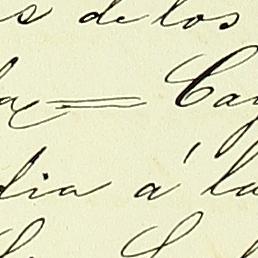 s de los
la = Cay
dia á la